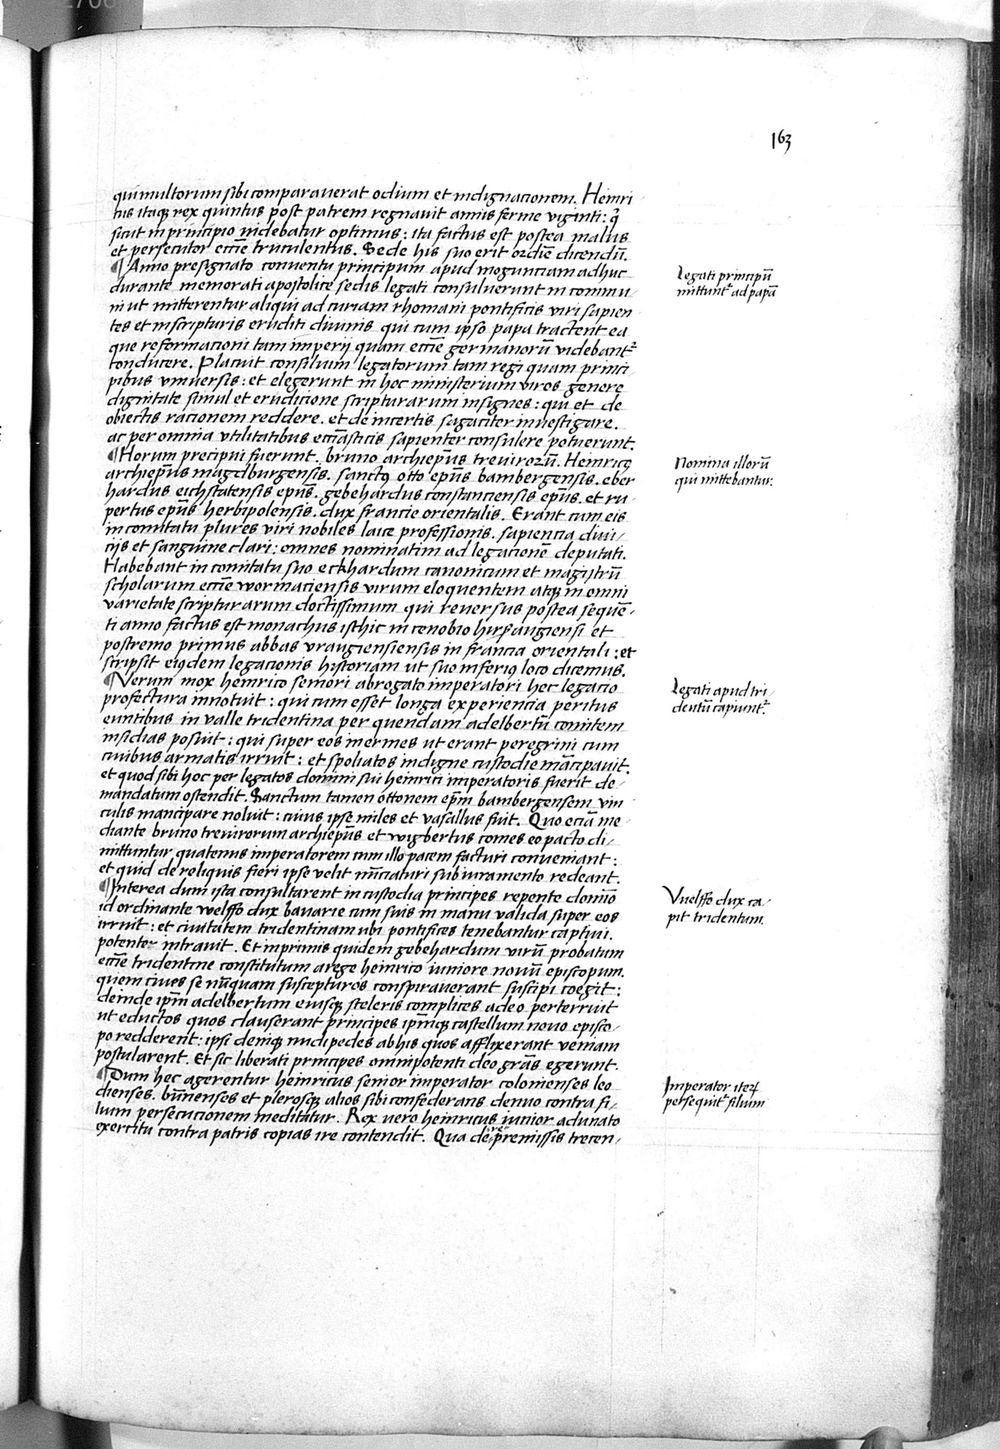 163
qui multorum sibi comparaverat odium et indignacionem. Heinri
cus itaqꝫ rex quintus post patrem regnavit annis ferme viginti: q̇
sicut in principio videbatur optimus: ita factus est postea malus
et persecutor eccīe truculentus. Sed de his suo erit ordīe dicendū.
¶ Anno presignato conventu principum apud mogunciam adhuc
durante memorati apostolice sedis legati consuluerunt in commu-
ni ut mitterentur aliqui ad curiam rhomani pontificis viri sapien
tes et in scripturis eruditi divinis qui cum ipso papa tractent ea
que reformacioni tam imperij quam eccīe germanorū videbantʳ
conducere. Placuit consilium legatorum tam regi quam princi
pibus universis: et elegerunt in hoc ministerium viros genere
dignitate simul et erudicione scripturarum insignes: qui et de
obiectis racionem reddere. et de incertis sagaciter investigare.
ac per omnia utilitatibus ecclīasticis sapienter consulere potuerunt.
¶ Horum precipui fuerunt. bruno archiepūs trevirorū. Heinricꝰ
archiepūs magdburgensis. sanctꝰ otto epūs bambergensis. eber
hardus eichstatensis epūs. gebehardus constanciensis epūs. et ru-
pertus epūs herbipolensis. dux francie orientalis. Erant cum eis
in comitatu plures viri nobiles laice professionis. sapiencia divi-
cijs et sanguine clari: omnes nominatim ad legacionē deputati.
Habebant in comitatu suo eckhardum canonicum et magistrū
scholarum eccīe wormaciensis virum eloquentem atqꝫ in omni
varietate scripturarum doctissimum qui reversus postea sequē-
ti anno factus est monachus isthic in cenobio hirsaugiensi et
postremo primus abbas uraugiensiensis in francia orientali: et
scripsit eiꝰdem legacionis historiam ut suo inferiꝰ loco dicemus.
¶ Verum mox heinrico seniori abrogato imperatori hec legacio
profectura innotuit: qui cum esset longa experiencia peritus
euntibus in valle tridentina per quendam adelbertū comitem
insidias posuit: qui super eos inermes ut erant peregrini cum
civibus armatis irruit: et spoliatos indigne custodie mācipavit.
et quod sibi hoc per legatos domini sui heinrici imperatoris fuerit de-
mandatum ostendit. Sanctum tamen ottonem epm̄ bambergensem vin
culis mancipare noluit: cuius ipse miles et vasallus fuit. Quo eciā me
diante bruno trevirorum archiepūs et wigbertus comes eo pacto di-
mittuntur quatenus imperatorem cum illo pacem facturi conveniant:
et quid de reliquis fieri ipse velit nūciaturi sub iuramento redeant.
¶ Interea dum ista consultarent in custodia principes repente domīo
id ordinante welffo dux bavarie cum suis in manu valida super eos
irruit: et civitatem tridentinam ubi pontifices tenebantur captivi.
potenter intravit. Et inprimis quidem gebehardum virū probatum
eccīe tridentine constitutum a rege heinrico iuniore novū episcopum.
quem cives se nūquam suscepturos conspiraverant suscipi coegit:
deinde ipm̄ adelbertum eiusqꝫ sceleris complices adeo perterruit
ut eductos quos clauserant principes ipmīqꝫ castellum novo episco-
po redderent: ipsi deniqꝫ nudi pedes ab his quos afflixerant veniam
postularent. Et sic liberati principes omnipotenti deo grās egerunt.
¶ Dum hec agerentur heinricus senior imperator colonienses leo
dienses. būnenses et plerosqꝫ alios sibi confederans denuo contra fi-
lium persecucionem meditatur. Rex vero heinricus iunior adunato
exercitu contra patris copias ire contendit. Qua de re premissis trecen-
Legati principū
mittuntʳ ad papā
Nomina illorū
qui mittebantur:
Legati apud tri-
dentū capiuntʳ.
Vuelffo dux ca-
pit tridentum.
Imperator iteꝝ
persequitʳ filium